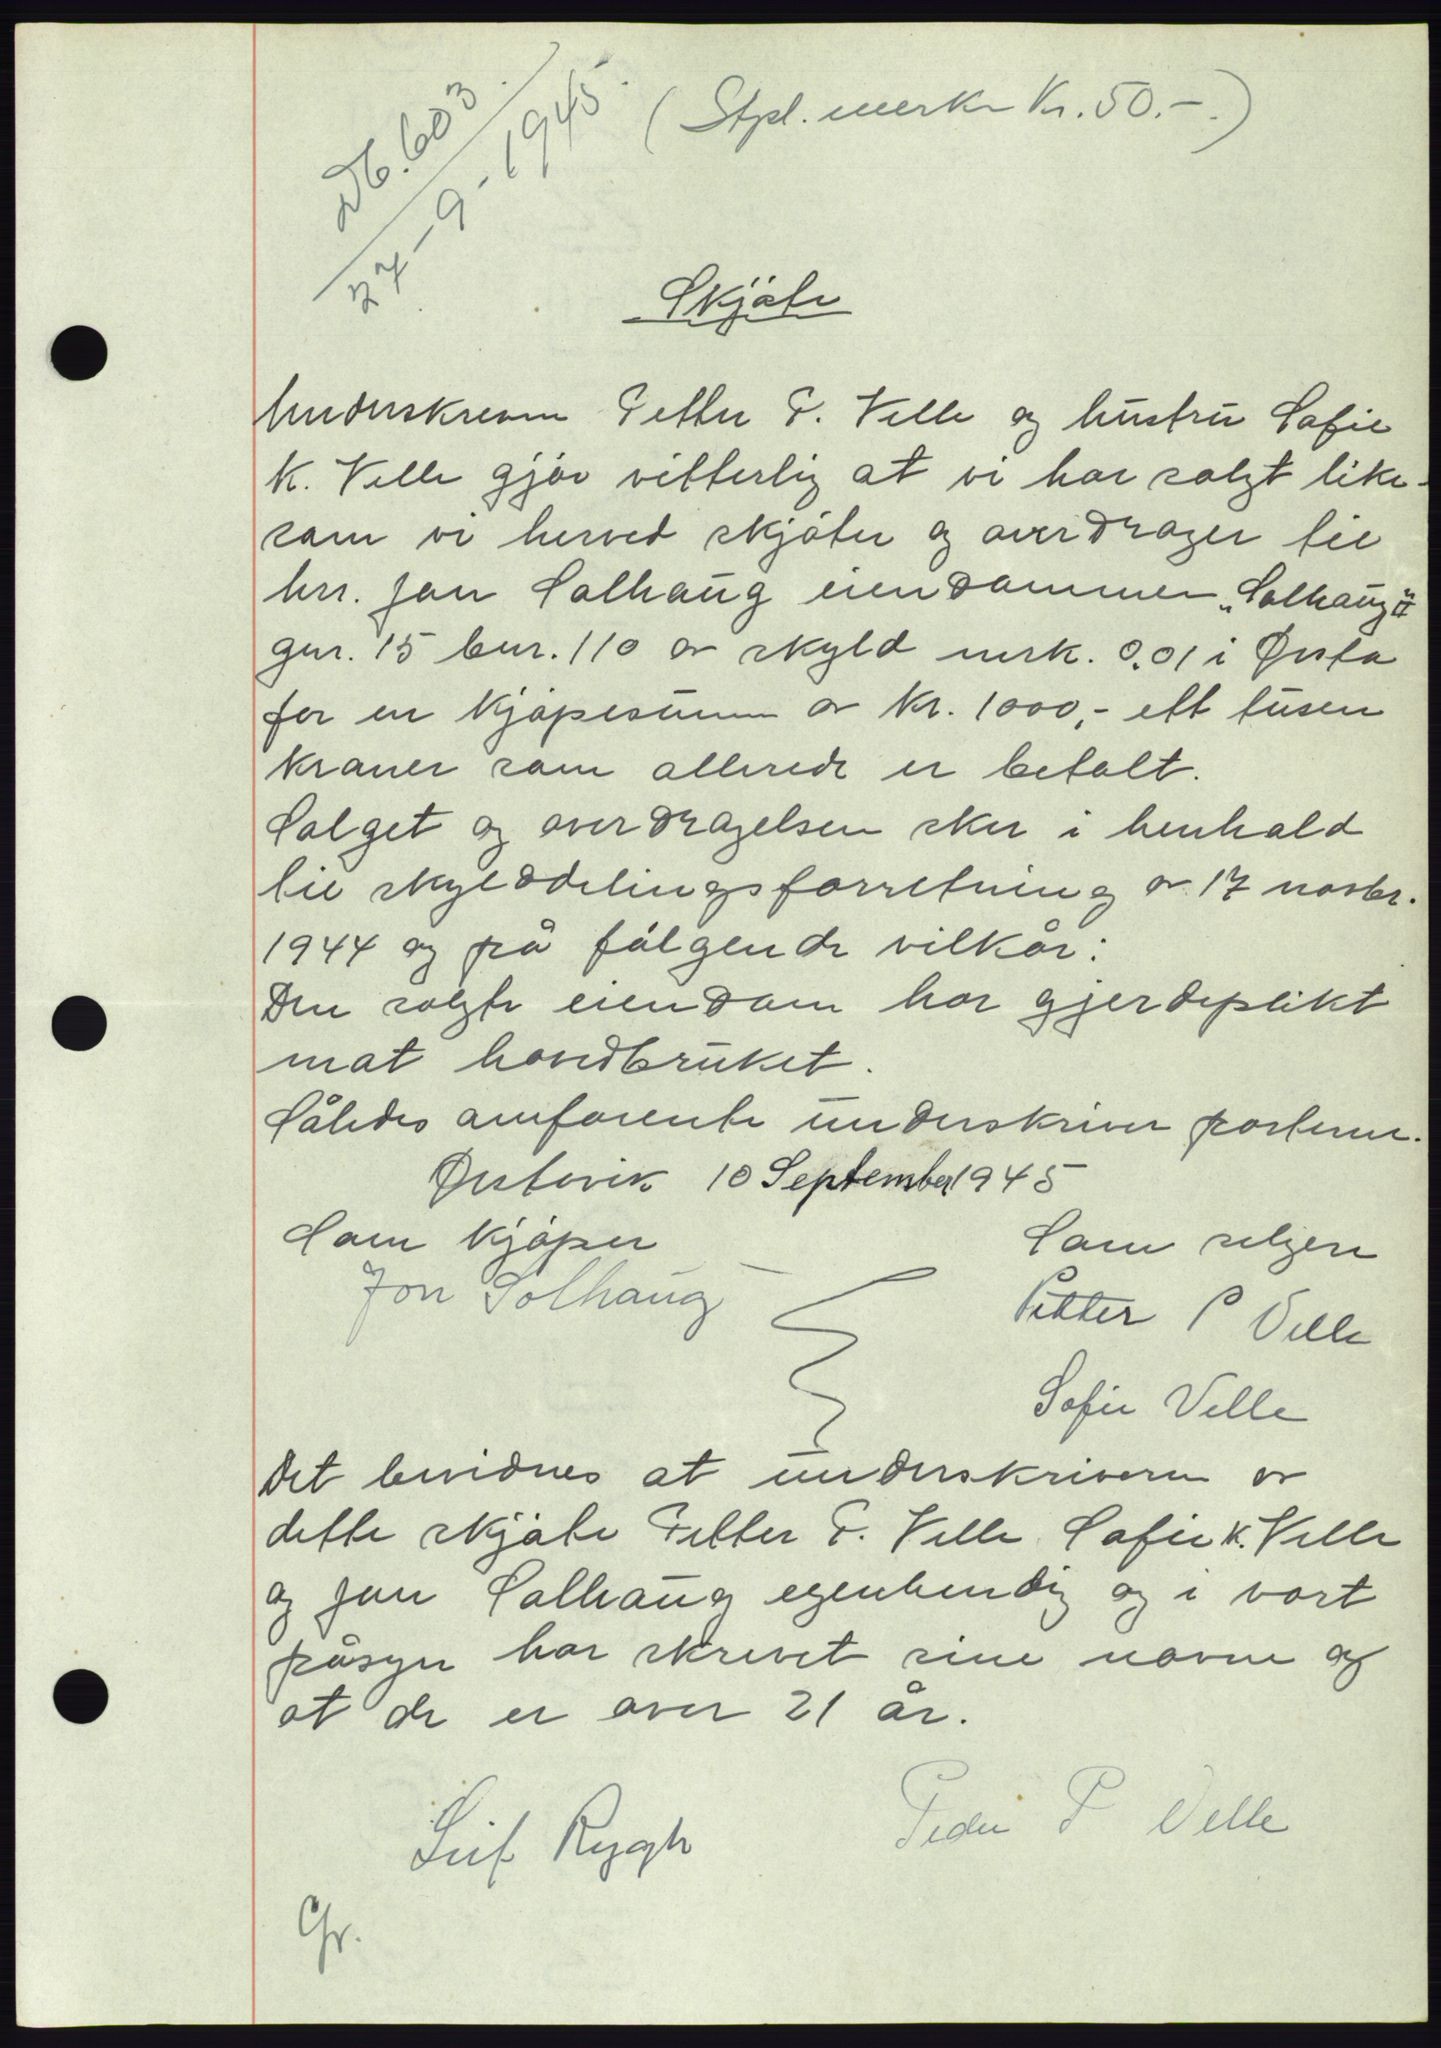 Db. 603.
27-9-1945.
(Stpl. merke Kr. 50.-.)
Skjøte
Underskrevne Petter P. Velle og hustru Sofie
K. Velle gjør vitterlig at vi har solgt like-
som vi herved skjøter og overdrager til
hrr. Jon Solhaug eiendommen „Solhaug II"
gnr. 15 bnr. 110 av skyld mrk. 0.01 i Ørsta
for en kjøpesum av kr. 1000,- ett tusen
kroner som allerede er betalt.
Salget og overdragelsen sker i henhold
til skylddelingsforretning av 17 novbr.
1944 og på følgende vilkår:
Den solgte eiendom har gjerdeplikt
mot hovedbruket.
Således omforente underskriver partene.
Ørstavik 10 September 1945
Som kjøper
Som selgere
Jon Solhaug
Petter P Velle
Sofie Velle
Det bevidnes at underskriverne av
dette skjøte Petter P. Velle Sofie K. Velle
og Jon Solhaug egenhendig og i vort
påsyn har skrevet sine navne og
at de er over 21 år.
Leif Rygh
Peder P Velle
Gr.